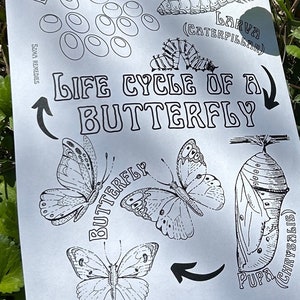 LARVA
(CATERPILLAR)
LIFE CYCLE OF A
BUTTERFLY
BUTTERFLY
PUPA
(CHRYSALIS)